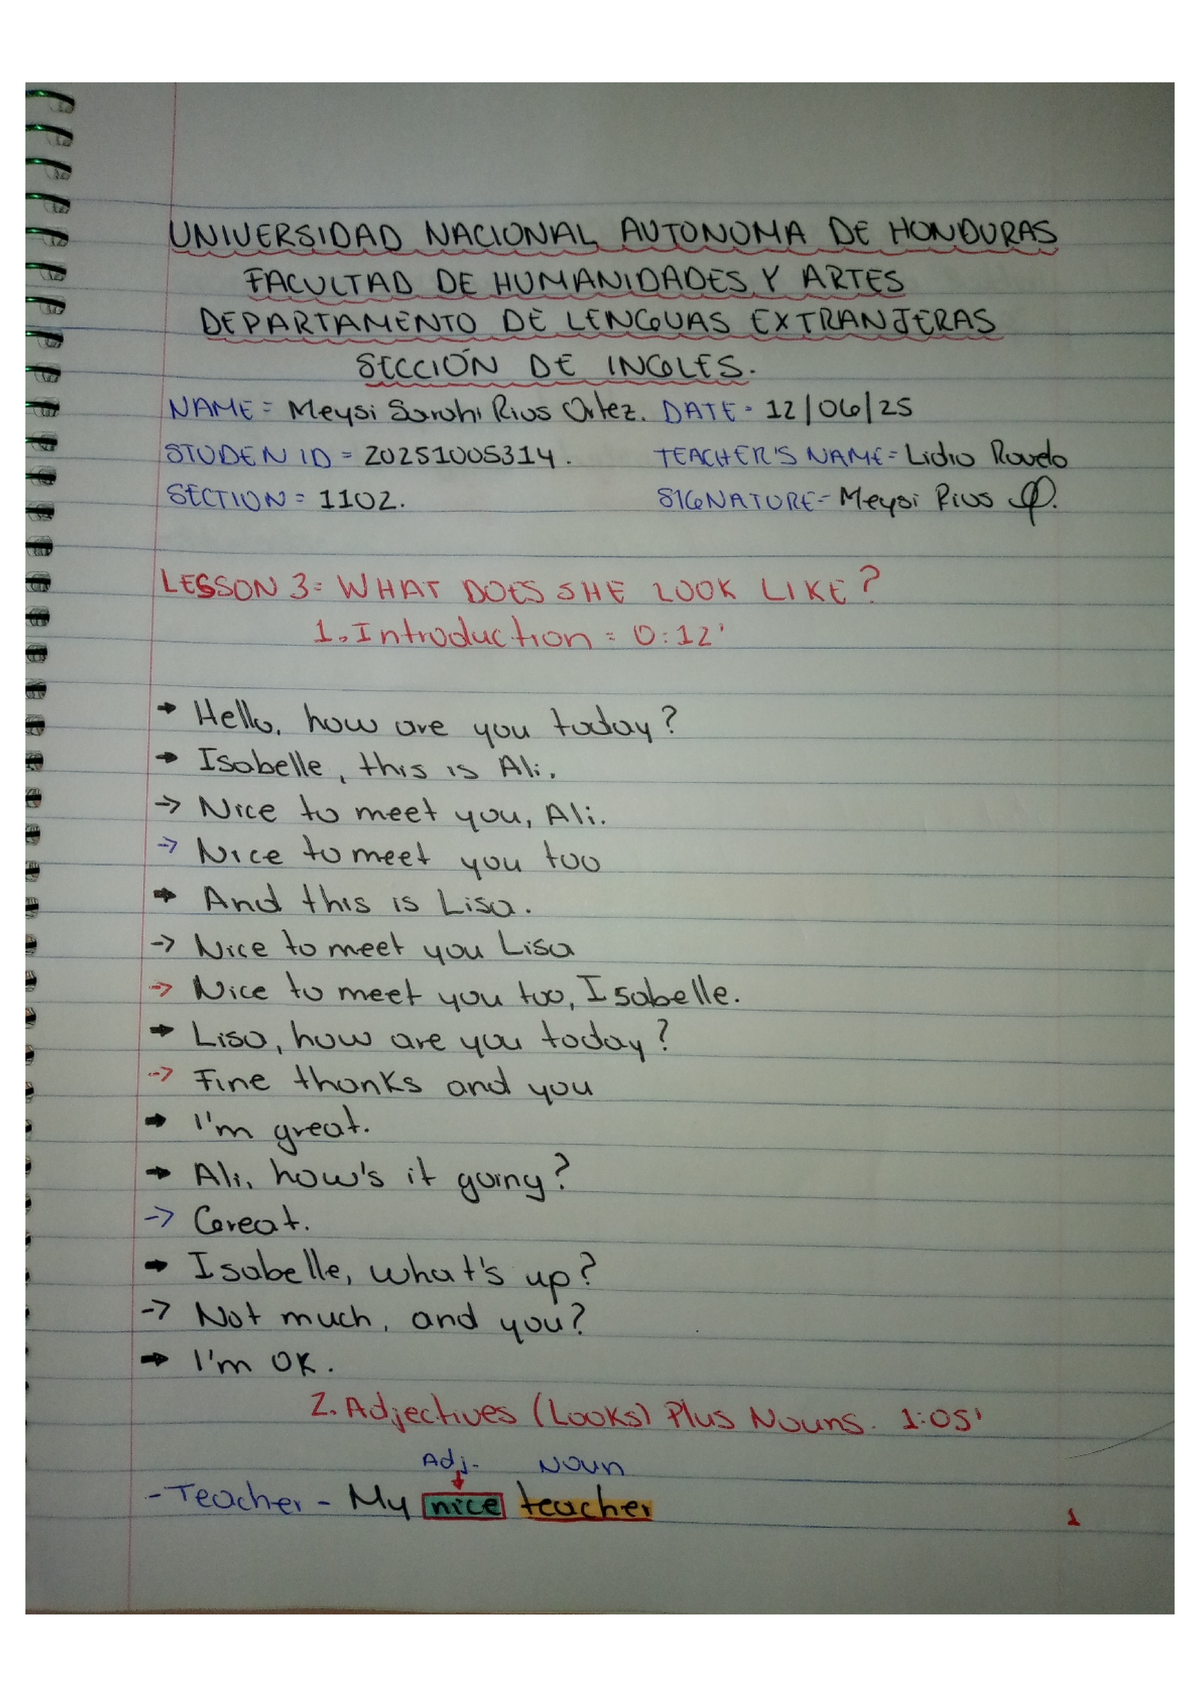 UNIVERSIDAD NACIONAL AUTONOMA DE HONDURAS
FACULTAD DE HUMANIDADES Y ARTES
DEPARTAMENTO DE LENGUAS EXTRANJERAS
SECCIÓN DE INGLES.
NAME = Meysi Sarahi Rius Ortez. DATE - 12/06/25
STUDEN ID = 20251005314. TEACHER'S NAME = Lidio Rovelo
SECTION = 1102. SIGNATURE - Meysi Rius
LESSON 3 = WHAT DOES SHE LOOK LIKE?
1. Introduction = 0:12'
➡ Hello, how are you today?
➡ Isabelle, this is Ali.
→ Nice to meet you, Ali.
→ Nice to meet you too
➡ And this is Lisa.
→ Nice to meet you Lisa
→ Nice to meet you too, Isabelle.
➡ Lisa, how are you today?
→ Fine thanks and you
➡ I'm great.
➡ Ali, how's it going?
→ Great.
➡ Isabelle, what's up?
→ Not much, and you?
➡ I'm OK.
2. Adjectives (Looks) Plus Nouns. 1:05'
Adj. Noun
- Teacher - My nice teacher
1